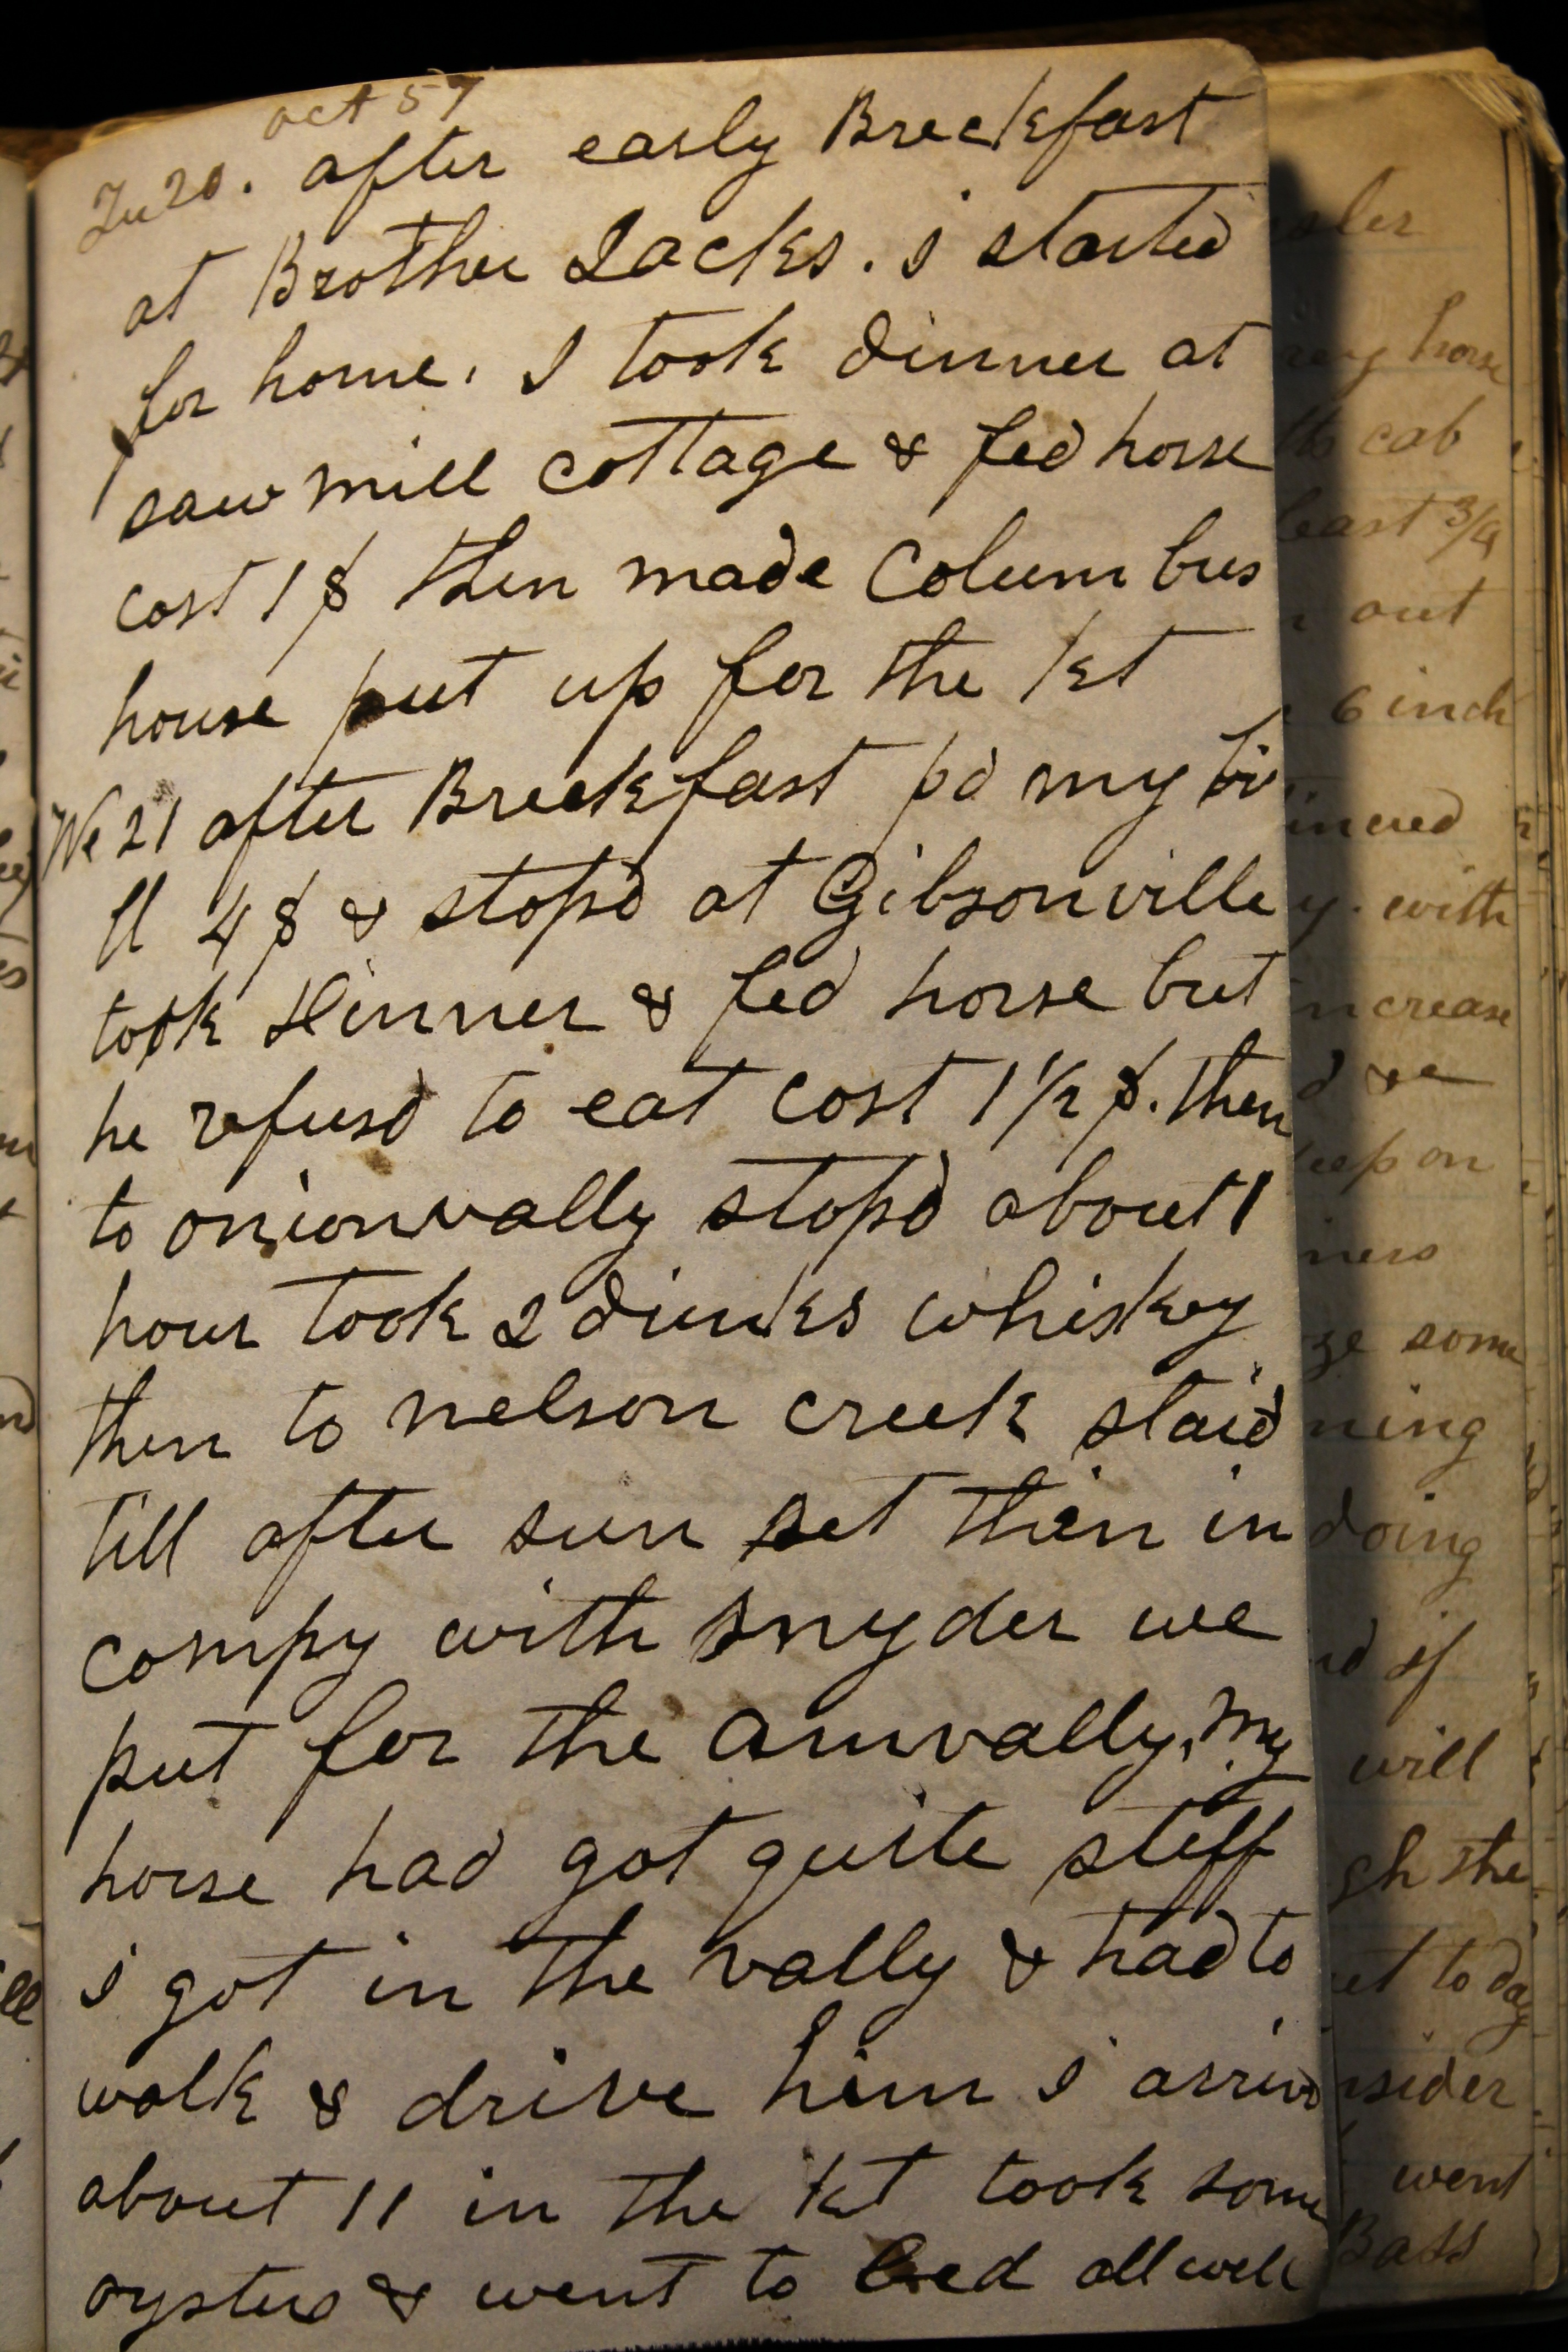 oct 57
Tu 20. after early Breckfast
at Brother Jacks. i started
for home. I took dinner at
saw mill cottage & fed horse
cost 1 $ then made Colum bus
house put up for the 1st
We 21 after Breekfast pd my bi
ll 4 $ & stopd at Gibsonville
took dinner & fed horse but
he refusd to eat cost 1 1/2 $. then
to onionvally stopd about 1
hour took 2 drinks whiskey
then to nelson creek staid
till after sun set then in
compy with snyder we
put for the amvally. my
horse had got quite steff
i got in the vally & had to
walk & drive him i arrivd
about 11 in the 1st took some
oysters & went to bed all well
sler
horse
cab
least 3/4
out
6 inch
with
increase
on
some
doing
if
will
gh the
to day
went
Bass